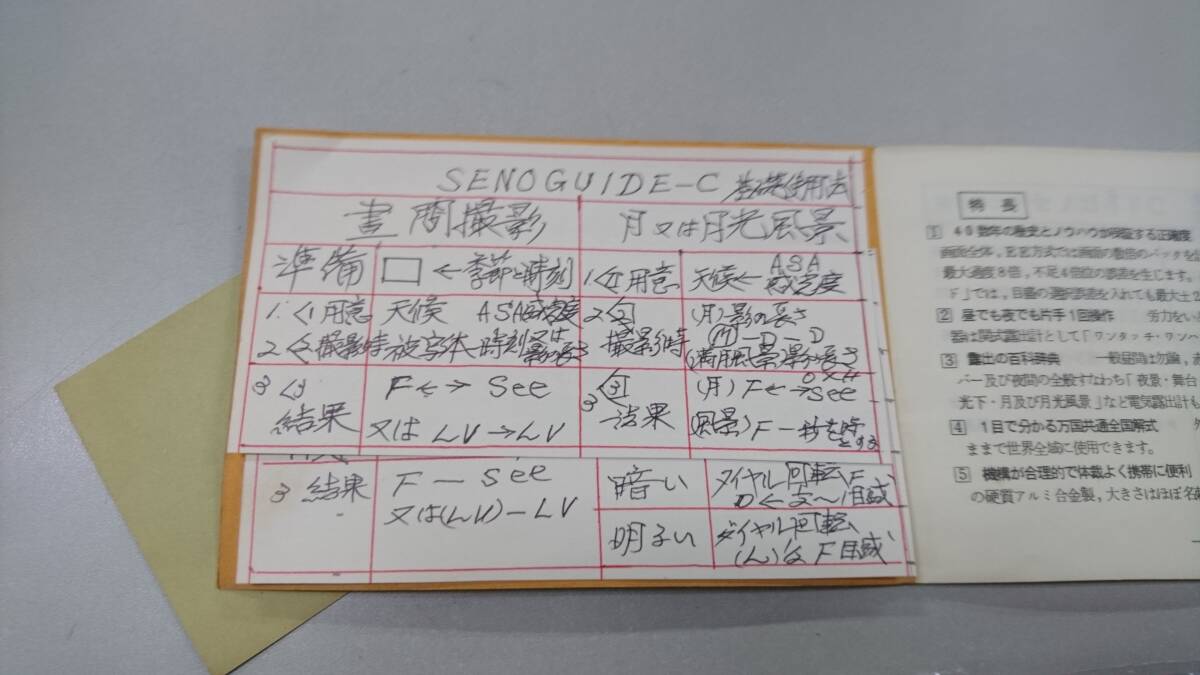 SENOGUIDE-C 基礎使用法
昼間撮影
月又は月光風景
準備
□ ←季節と時刻
1.<1 用意
天候 ← ASA感光度
1.<1 用意 天候 ASA感光度
2<2
(月)影の長さ
2<2 撮影時 被写体 時刻又は影の長さ
撮影時
(M)-D-D
3 <3
結果
F←→See
又は LV→LV
3 <3
結果
(月) F←→See
(風景) F-秒を時とする
3 結果
F-See
又は(LV)-LV
暗い
ダイヤル回転 F
明るい
ダイヤル回転
F目盛
特長
1 40数年の歴史とノウハウが実証する正確度
最大過度8倍、不足4倍位の誤差を生じます。
F」では、目盛の選択誤差を入れても最大土
2 昼でも夜でも片手1回操作 労力をい
器は関式露出計として「ワンタッチ・ワンハ
3 露出の百科辞典 一般昼間は勿論,
バー及び夜間の全般すなわち「夜景・舞台
光下・月及び月光風景」など電気露出計も
4 1目で分かる万国共通全国解式
ままで世界全域に使用できます。
5 機構が合理的で体裁よく携帯に便利
の硬質アルミ合金製,大きさはほぼ名